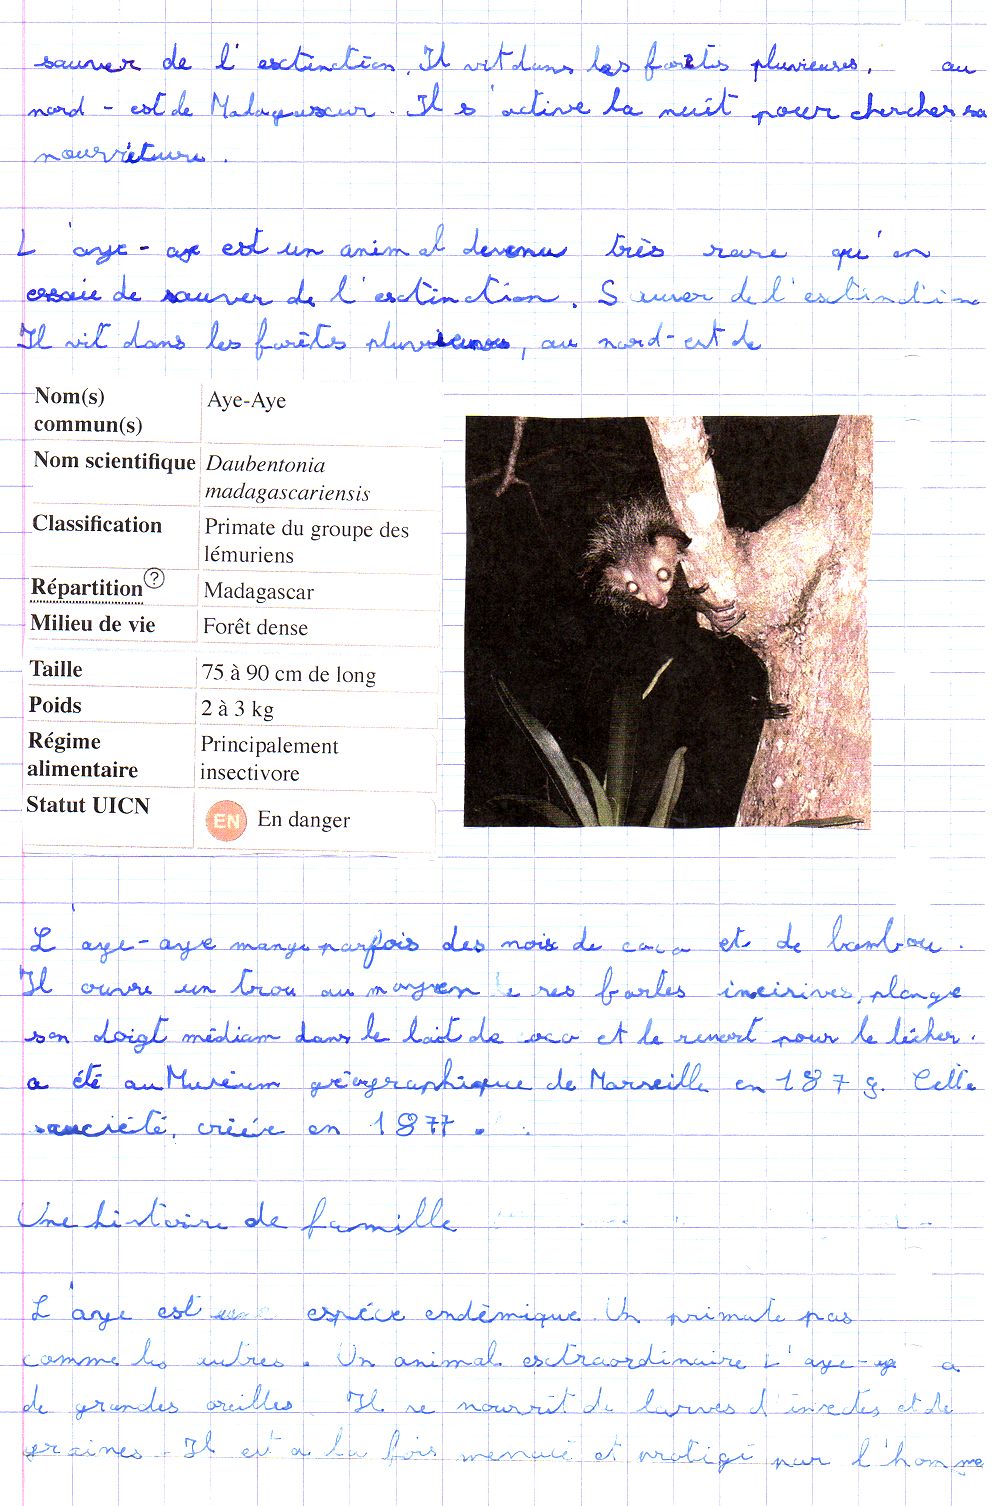 sauver de l'esctinction. Il vit dans les forêts pluvieuses. au
nord-est de Madaguscur. Il s'active la nuit pour chercher sa
nourriture.
L'aye-aye est un animal devenu très rare qu'on
essaie de sauver de l'esctinction. Sauver de l'esctinction
Il vit dans les forêts pluvieuses, au nord-est de
Nom(s) commun(s) Aye-Aye
Nom scientifique Daubentonia madagascariensis
Classification Primate du groupe des lémuriens
Répartition ? Madagascar
Milieu de vie Forêt dense
Taille 75 à 90 cm de long
Poids 2 à 3 kg
Régime alimentaire Principalement insectivore
Statut UICN EN En danger
L'aye-aye mange parfois des noix de coco et de bambou.
Il ouvre un trou au moyen de ses fortes incisives, plonge
son doigt médiam dans le lait de coco et le ressort pour le lécher.
a été au Muséum géographique de Marseille en 187 . Cette
société, créée en 1877.
Une histoire de famille
L'aye est une espéce endèmique. Un primate pas
comme les autres. Un animal esctraordinaire L'aye-aye a
de grandes oreilles. Il se nourrit de larves d'insectes et de
graines. Il est a la fois menacé et protégé par l'homme